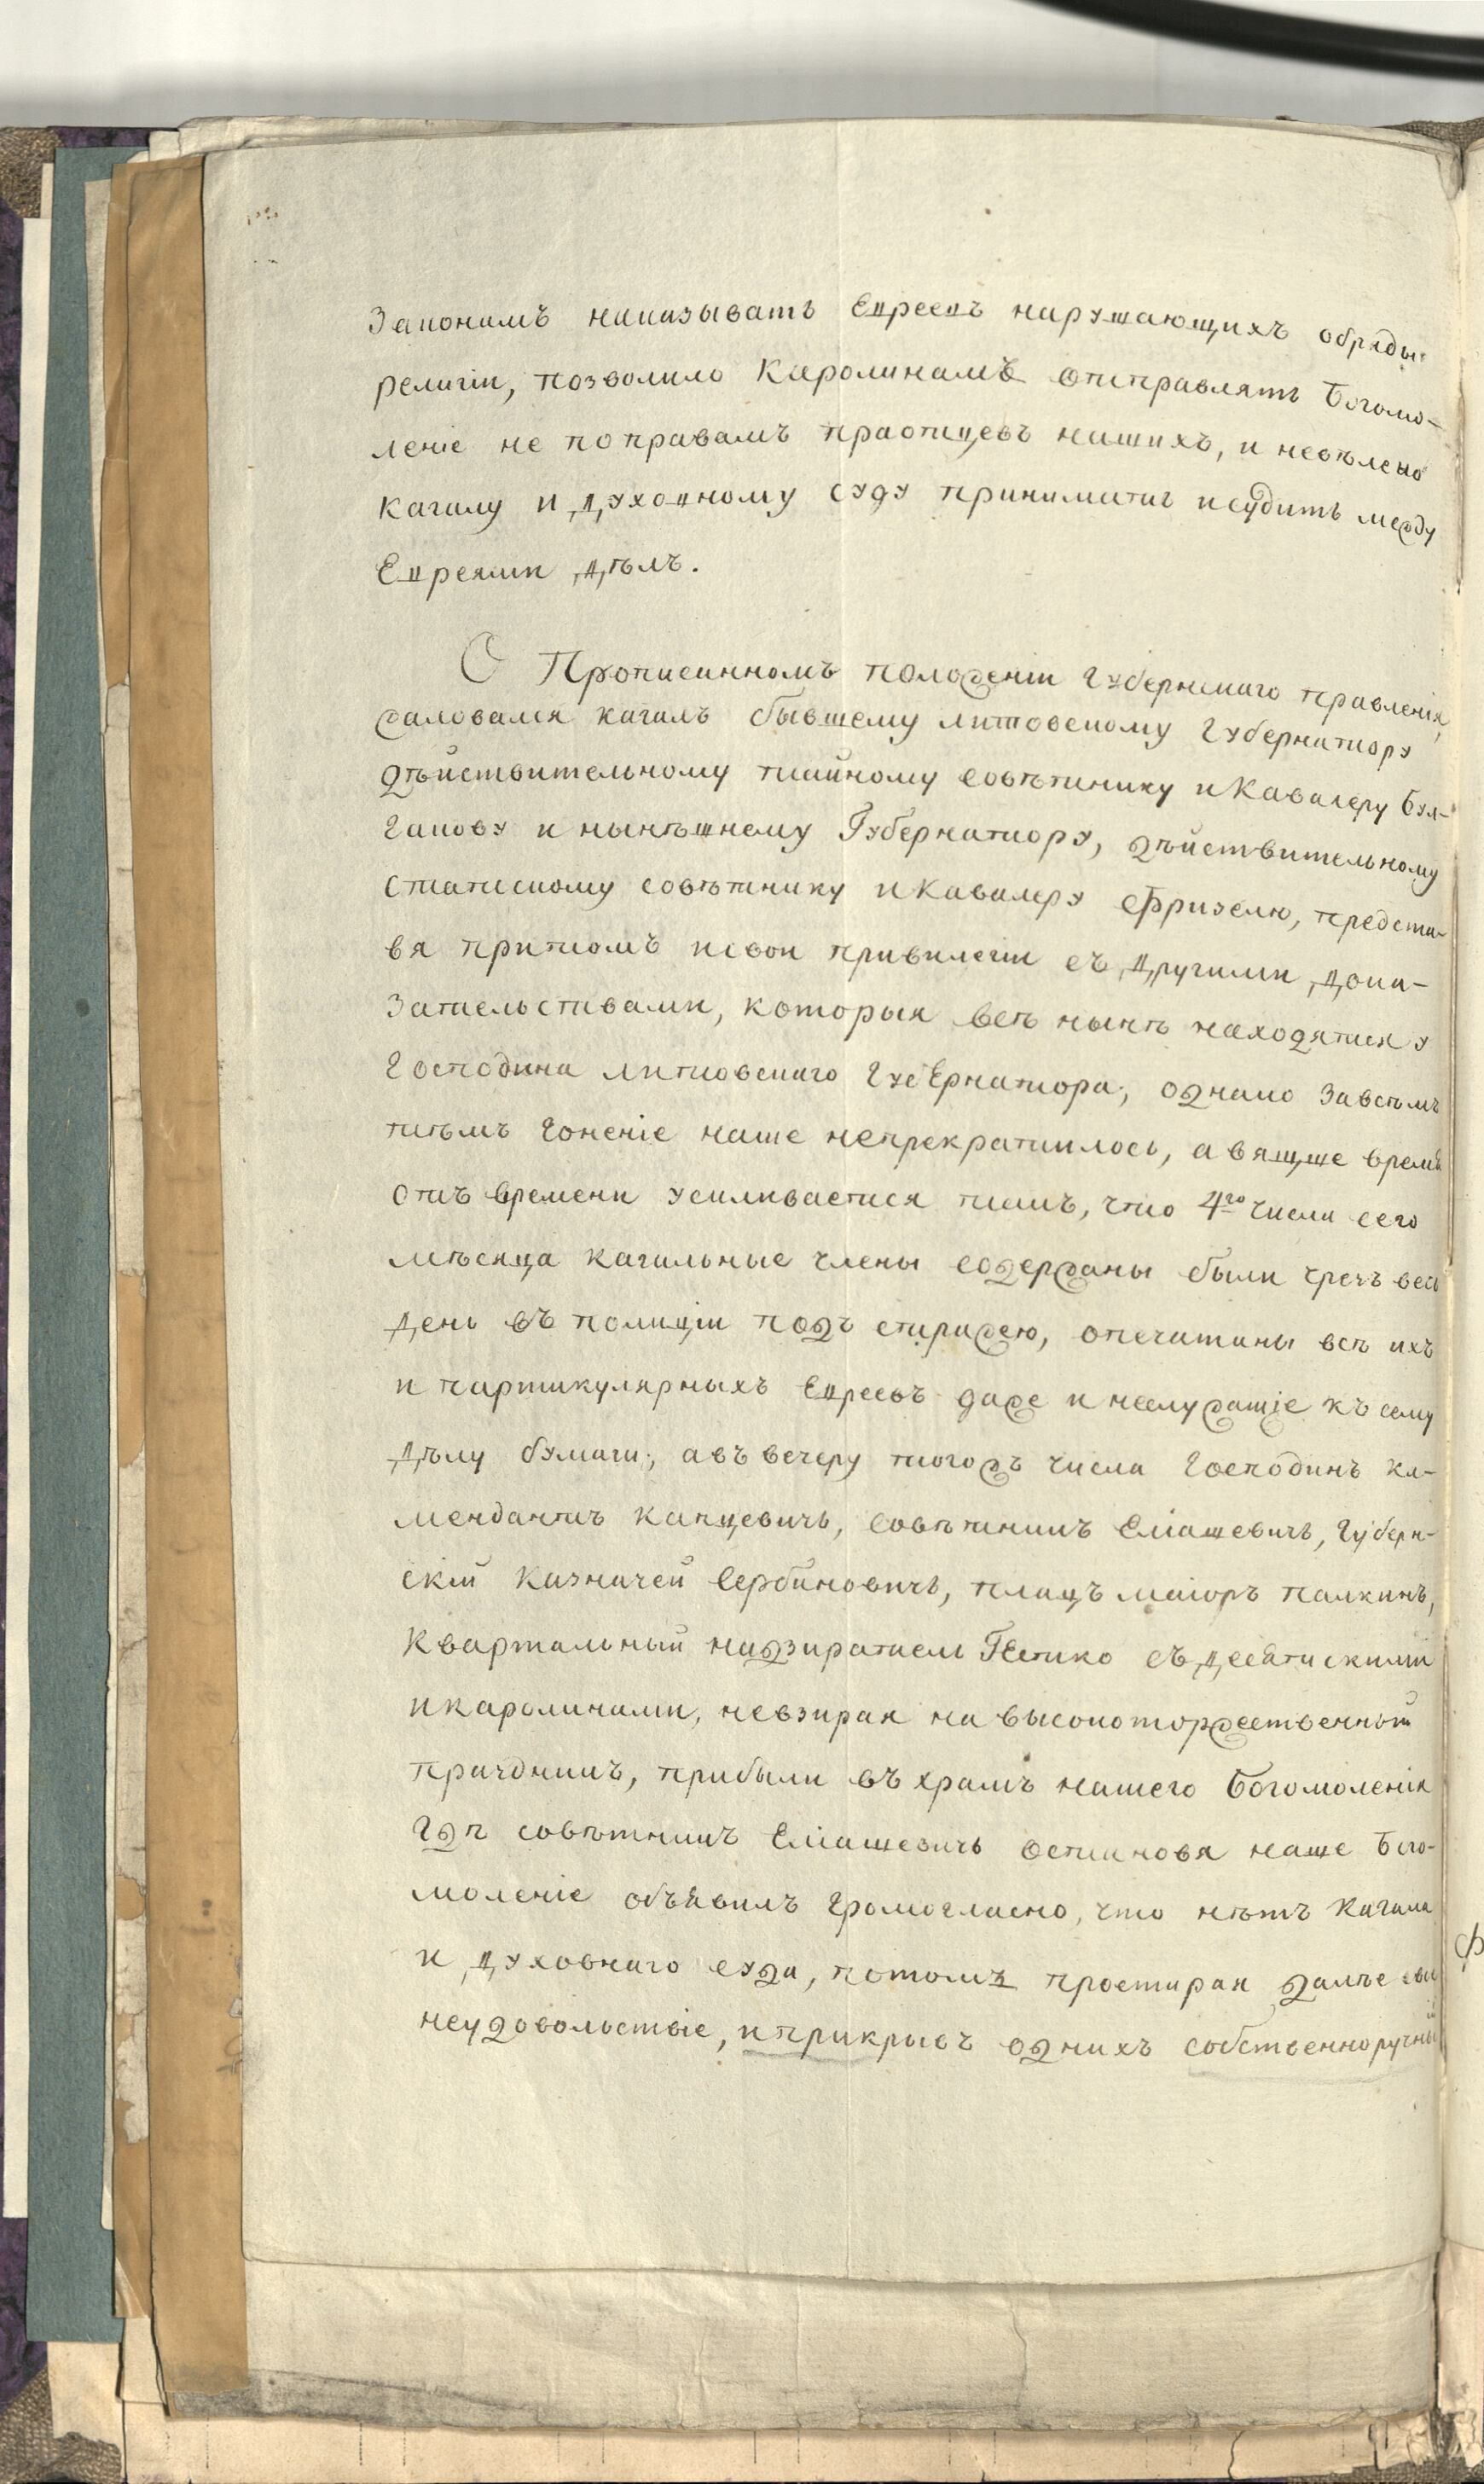 Закономъ наказывать Евреевъ нарушающихъ обряды
религіи, позволило Каролинамъ отправлять Богомо-
леніе не поправамъ праотцевъ нашихъ, и невѣлено
кагалу и духовному суду приниматъ исудить между
Евреями дѣлъ.
О Прописанномъ положеніи Губернскаго правленія,
жаловался кагалъ бывшему литовскому Губернатору
дѣйствительному тайному совѣтнику иКавалеру Бул-
гакову и нынѣшнему Губернатору, дѣйствительному
статскому совѣтнику иКавалеру Фризелю, предста-
вя притомъ исвои привилегіи съ другими дока-
зательствами, которыя всѣ нынѣ находятся у
Господина литовскаго Губернатора; однако завсѣмъ
тѣмъ гоненіе наше непрекратилось, а вящше время
отъ времени усиливается такъ, что 4го числа сего
мѣсяца кагальные члены содержаны были чрезъ весь
день въ полиціи подъ стражею, опечатаны всѣ ихъ
и партикулярныхъ Евреевъ даже и неслужащіе къ сему
дѣлу бумаги; авъ вечеру тогожъ числа Господинъ ка-
мендантъ Капцевичь, совѣтникъ Еліашевичь, Губерн-
скій Казначей Сербиновичь, плацъ маіоръ палкинъ,
Квартальный надзиратель Гетко съ десятскими
икаролинами, невзирая на высокоторжественный
праздникъ, прибыли въ храмъ нашего Богомоленія
Гдѣ совѣтникъ Еліашевичь остановя наше Бого-
моленіе объявилъ громогласно, что нѣтъ Кагала
и духовнаго суда, потомъ простирая далѣе сви
неудовольствіе, иприкрывъ однихъ собственноручный